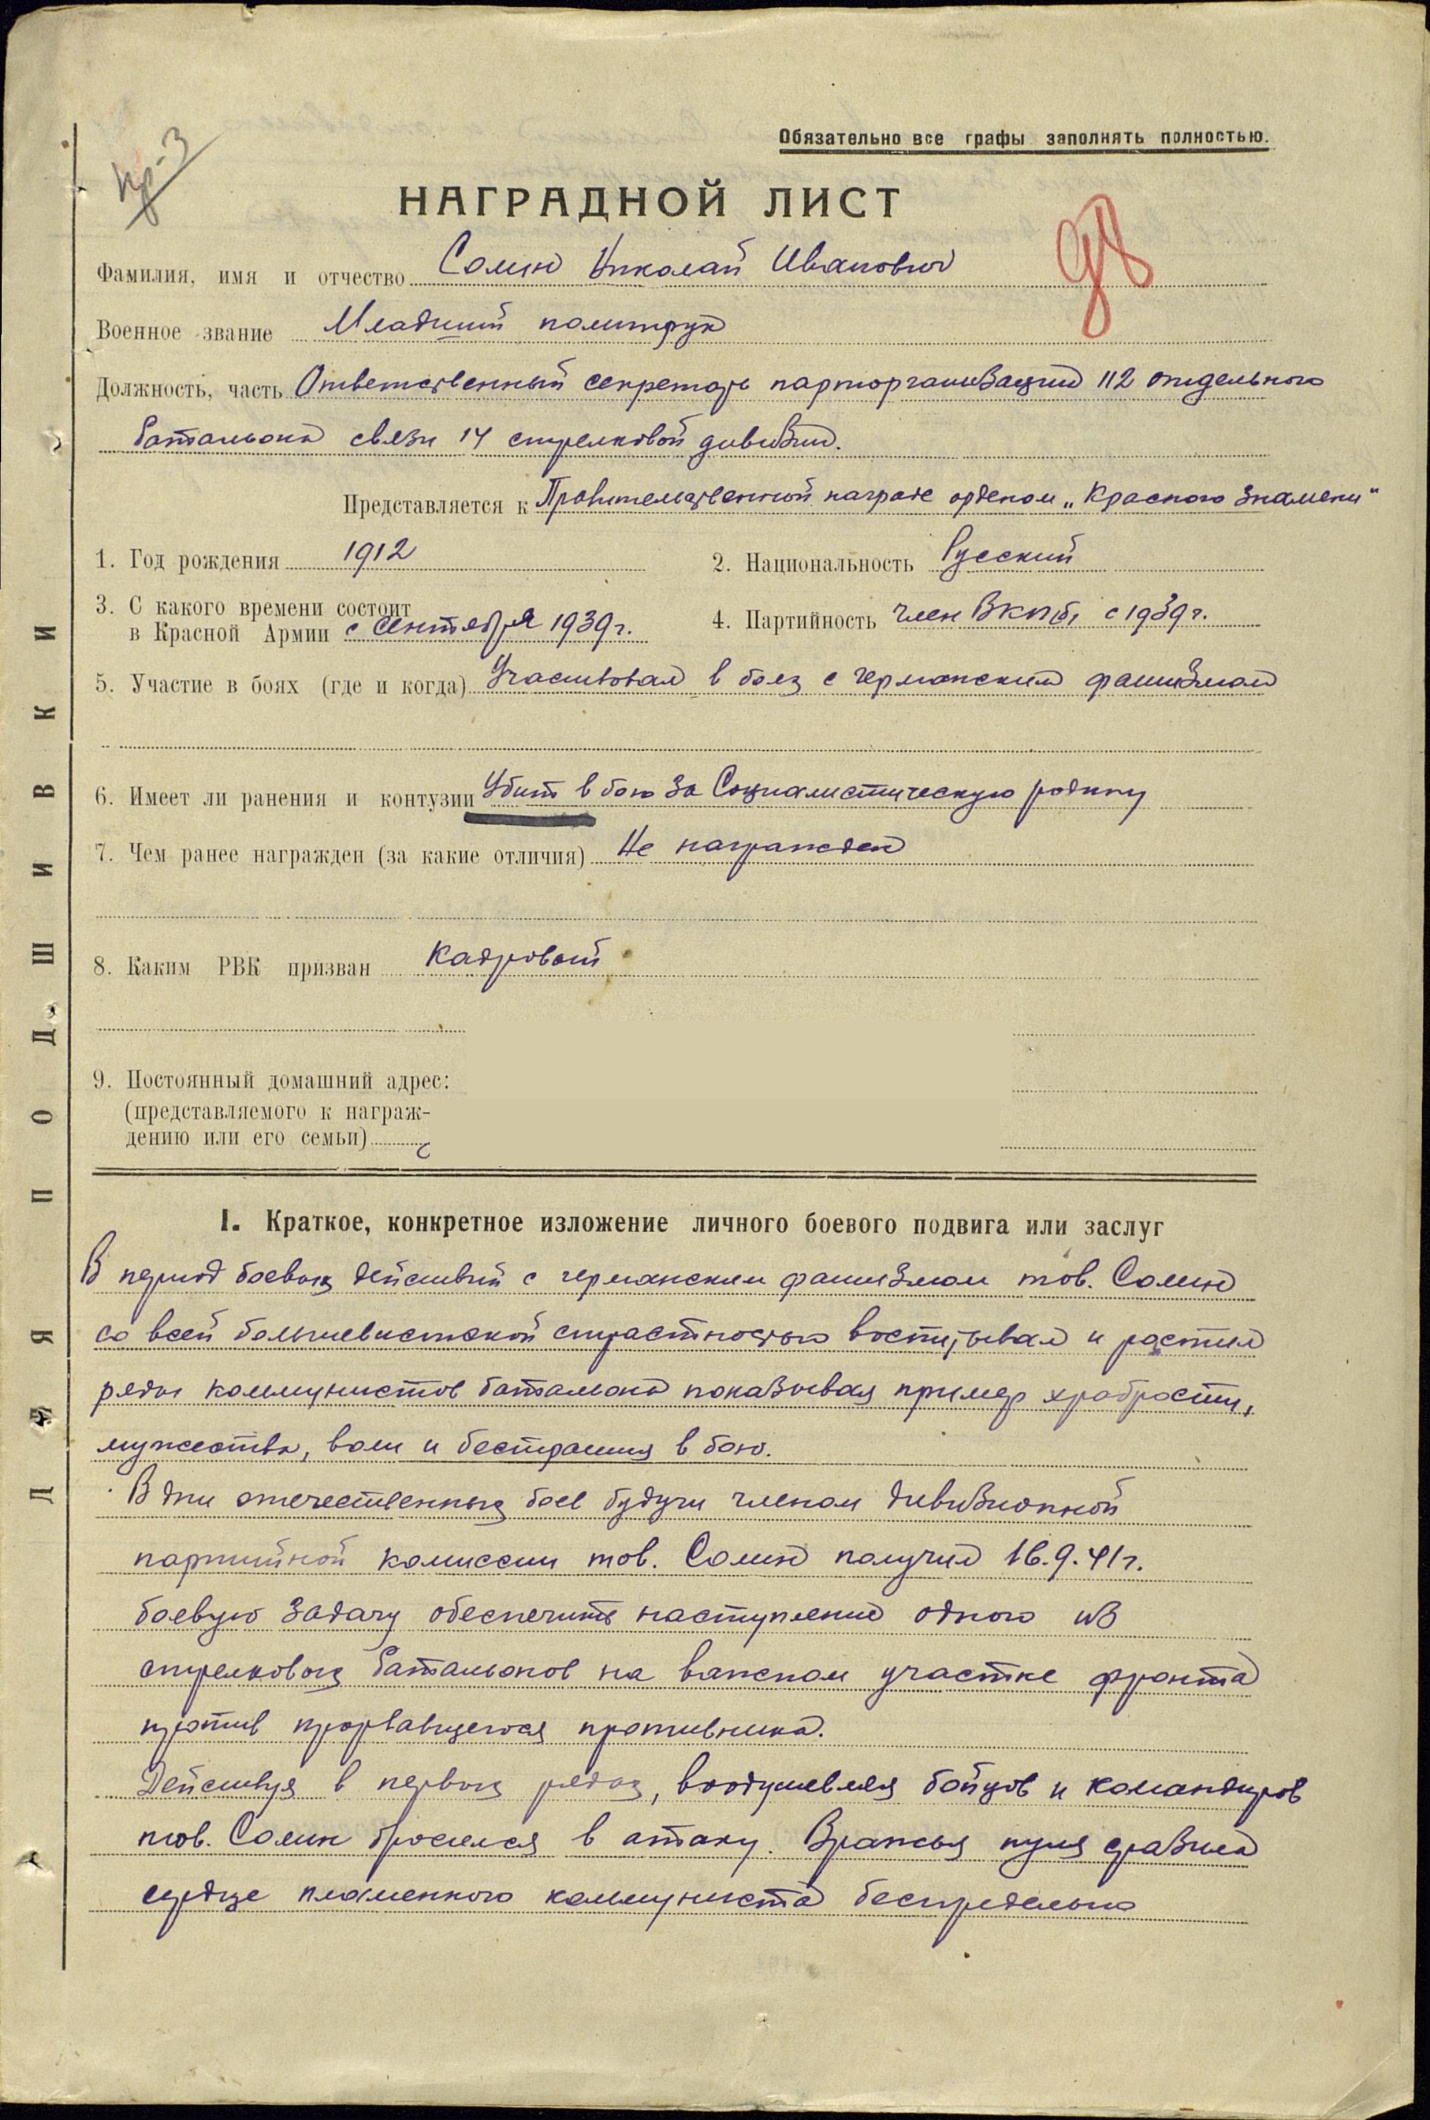 Кр-3
Обязательно все графы заполнять полностью.
НАГРАДНОЙ ЛИСТ
98
Фамилия, имя и отчество Сомин Николай Иванович
Военное звание Младший политрук
Должность, часть Ответственный секретарь парторганизации 112 отдельного
батальона связи 14 стрелковой дивизии.
Представляется к Правительственной награде орденом „Красного Знамени"
1. Год рождения 1912 2. Национальность Русский
3. С какого времени состоит
в Красной Армии с сентября 1939г. 4. Партийность член ВКП(б) с 1939г.
5. Участие в боях (где и когда) Участвовал в боях с германским фашизмом
6. Имеет ли ранения и контузии Убит в бою за Социалистическую родину
7. Чем ранее награжден (за какие отличия) Не награжден
8. Каким РВК призван Кадровый
9. Постоянный домашний адрес:
(представляемого к награж-
дению или его семьи)
ДЛЯ ПОДШИВКИ
I. Краткое, конкретное изложение личного боевого подвига или заслуг
В период боевых действий с германским фашизмом тов. Сомин
со всей большевистской страстностью воспитывал и растил
ряды коммунистов батальона показывая пример храбрости,
мужества, воли и бестрашия в бою.
В дни отечественных боев будучи членом дивизионной
партийной комиссии тов. Сомин получил 16.9.41г.
боевую задачу обеспечить наступление одного из
стрелковых батальонов на важном участке фронта
против прорвавшегося противника.
Действуя в первых рядах, воодушевляя бойцов и командиров
тов. Сомин бросился в атаку. Вражья пуля сразила
сердце пламенного коммуниста беспредельно